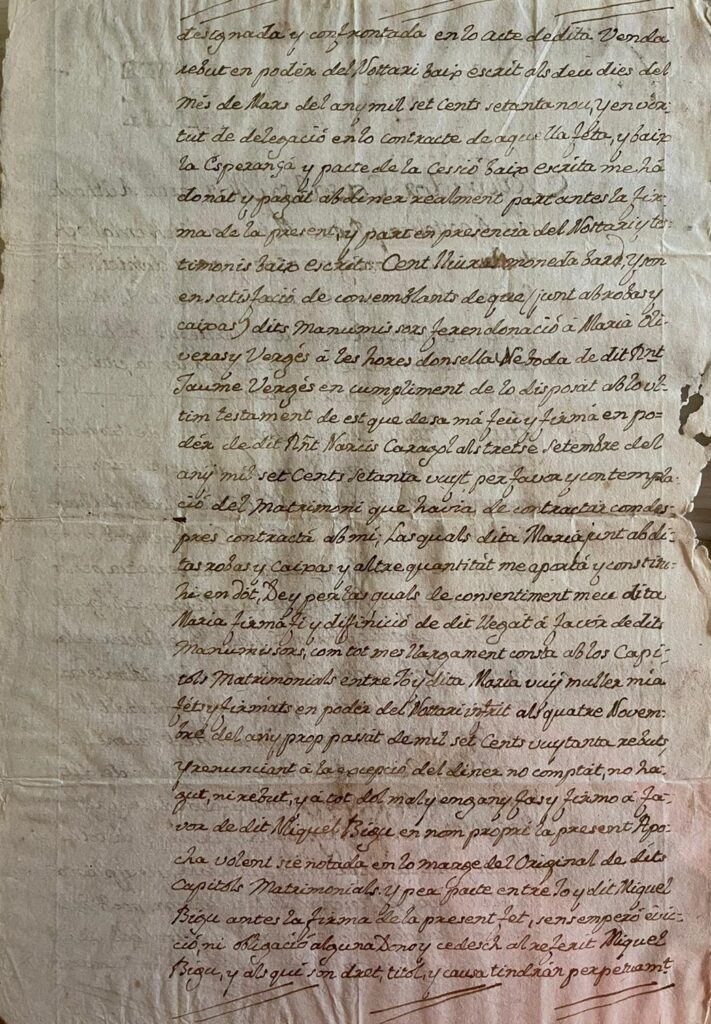 designada y confrontada en lo acte de dita Venda
rebut en podér del Nottari baix escrit als deu dies del
més de Mars del any mil set Cents setanta nou, y en ver-
tut de delegació en lo contracte de aquella feta, y baix
la Esperança y pacte de la Cessió baix escrita me há
donát y pagát ab diner realment part antes la fir-
ma de la present, y part en presencia del Nottari y tes-
timonis baix escrits. Cent lliuras moneda bar.ª, y son
en satisfació de consemblants de que (junt ab robas y
caixas) dits Manumissors feren donació á Maria Oli-
veras y Vergés á les hores donsella Neboda de dit Rnt
Jaume Vergés en cumpliment de lo disposat ab lo ul-
tim testament de est que de sa má feu y firmá en po=
dér de dit Rnt Narcis Caragol als tretse Setembre del
any mil set Cents setanta vuyt per favor y contempla-
ció del Matrimoni que havia de contractar com des-
prés contractá ab mi; Las quals dita Maria junt ab di-
tas robas y caixas y altre quantitát me aportá y constitu-
hi en dót, De y per las quals de consentiment meu dita
Maria firmá fi y difinició de dit llegat á favór de dits
Manumissors, com tot mes llargament consta ab los Capi-
tols Matrimonials entre Jo y dita Maria vuy muller mia
féts y firmats en podér del Nottari infrit als quatre Novem-
bre del any prop passát de mil set Cents vuytanta rebuts
y renunciant á la excepció del diner no comptát, no ha-
gut, ni rebut, y á tot dol mal y engany fas y firmo á fa-
vor de dit Miquél Bigu en nom propri la present Apo-
cha volent sie notada en lo marge del Original de dits
Capitols Matrimonials. y per pacte entre Jo y dit Miquel
Bigu antes la firma de la present fet, sens emperó evic-
ció, ni obligació alguna Dono y cedesch al referit Miquel
Bigu, y als qui son dret, titol, y causa tindrán perpetuamt